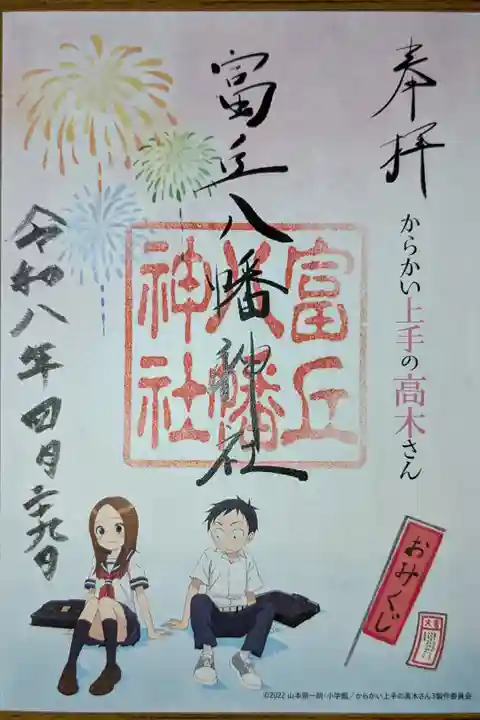 奉拝
からかい上手の高木さん
富丘八幡神社
富丘
八幡
神社
令和八年四月二十九日
おみくじ
大吉
©2022 山本崇一朗・小学館／からかい上手の高木さん3製作委員会